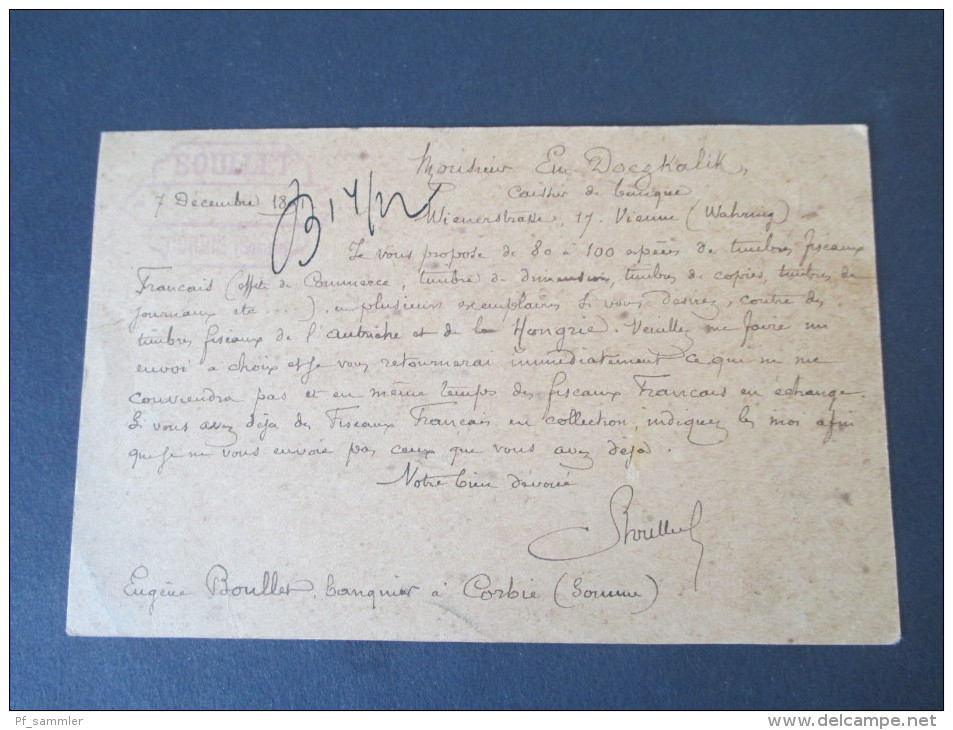 BOULLET
Monsieur Em Doczkalik,
7 Décembre
Caissier de banque
Wienerstrasse, 17. Vienne (Wahring)
Je vous propose de 80 à 100 espèces de timbres fiscaux
Francais (effets de Commerce, timbre de dimension, timbres de copies, timbres de
journaux etc ....), en plusieurs exemplaires si vous désirez, contre des
timbres fiscaux de l'autriche et de la Hongrie. Veuillez me faire un
envoi à choix et je vous retournerai immédiatement ce qui ne me
conviendra pas et en même temps des fiscaux Francais en échange.
Si vous avez déjà des Fiscaux Français en collection, indiquez les moi afin
que je ne vous envoie pas ceux que vous avez déjà.
Votre bien dévoué
Boullet
Eugène Boullet, banquier à Corbie (Somme)
Pf_sammler